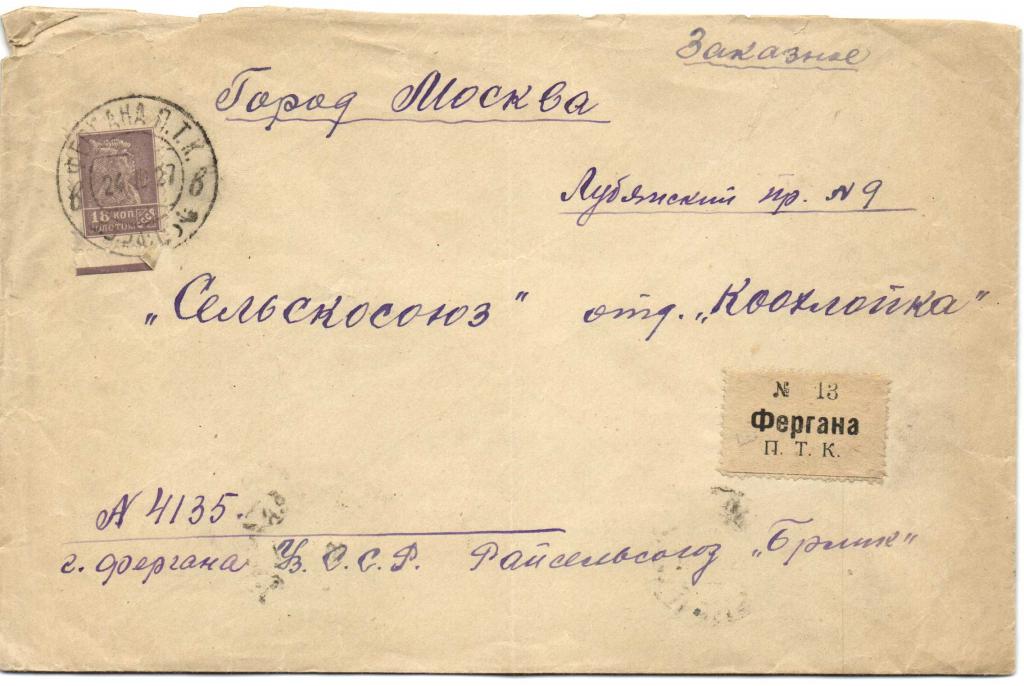 Заказное
Город Москва
ФЕРГАНА П.Т.К.
в 24 27 в
18 КОП
ЗОЛОТОМ
СССР
Лубянский пр. № 9
„Сельскосоюз" отд. „Коохлопка"
№ 13
Фергана
П. Т. К.
№ 4135.
г. Фергана Уз. С. С. Р. Райсельсоюз „Брлик"